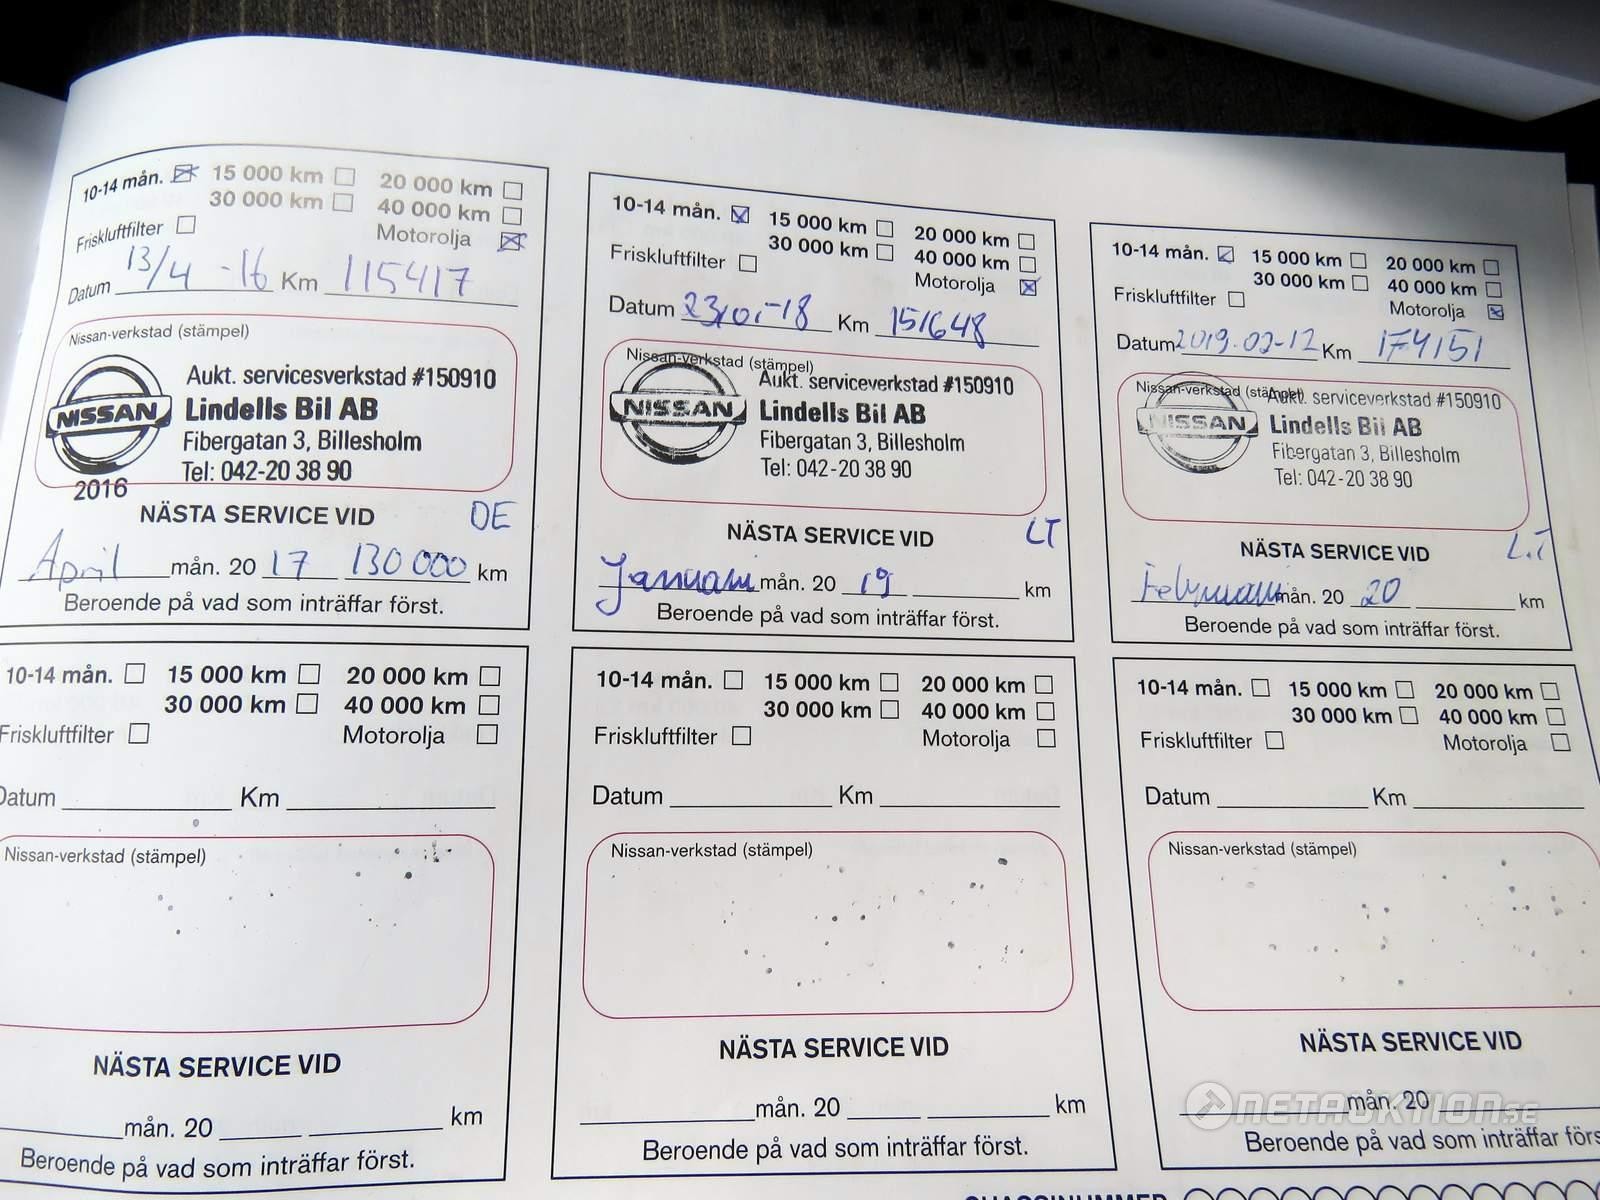 10-14 mån. 15 000 km 20 000 km
30 000 km 40 000 km
Friskluftfilter Motorolja
Datum 13/4 -16 Km 115417
Nissan-verkstad (stämpel)
NISSAN
2016
Aukt. servicesverkstad #150910
Lindells Bil AB
Fibergatan 3, Billesholm
Tel: 042-20 38 90
NÄSTA SERVICE VID DE
April mån. 20 17 130 000 km
Beroende på vad som inträffar först.
10-14 mån. 15 000 km 20 000 km
30 000 km 40 000 km
Friskluftfilter Motorolja
Datum 23/01-18 Km 151648
Nissan-verkstad (stämpel)
NISSAN
Aukt. serviceverkstad #150910
Lindells Bil AB
Fibergatan 3, Billesholm
Tel: 042-20 38 90
NÄSTA SERVICE VID LT
Januari mån. 20 19 km
Beroende på vad som inträffar först.
10-14 mån. 15 000 km 20 000 km
30 000 km 40 000 km
Friskluftfilter Motorolja
Datum 2019.02-12 Km 174151
Nissan-verkstad (stämpel)
NISSAN
Aukt. serviceverkstad #150910
Lindells Bil AB
Fibergatan 3, Billesholm
Tel: 042-20 38 90
NÄSTA SERVICE VID L.T
Februari mån. 20 20 km
Beroende på vad som inträffar först.
10-14 mån. 15 000 km 20 000 km
30 000 km 40 000 km
Friskluftfilter Motorolja
Datum Km
Nissan-verkstad (stämpel)
NÄSTA SERVICE VID
mån. 20 km
Beroende på vad som inträffar först.
10-14 mån. 15 000 km 20 000 km
30 000 km 40 000 km
Friskluftfilter Motorolja
Datum Km
Nissan-verkstad (stämpel)
NÄSTA SERVICE VID
mån. 20 km
Beroende på vad som inträffar först.
10-14 mån. 15 000 km 20 000 km
30 000 km 40 000 km
Friskluftfilter Motorolja
Datum Km
Nissan-verkstad (stämpel)
NÄSTA SERVICE VID
mån. 20
Beroende på vad som inträffar förs
NETAUKTION.SE
CHASSINUMMER